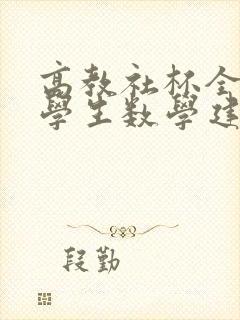 高教社杯全
學生数學建
段勤